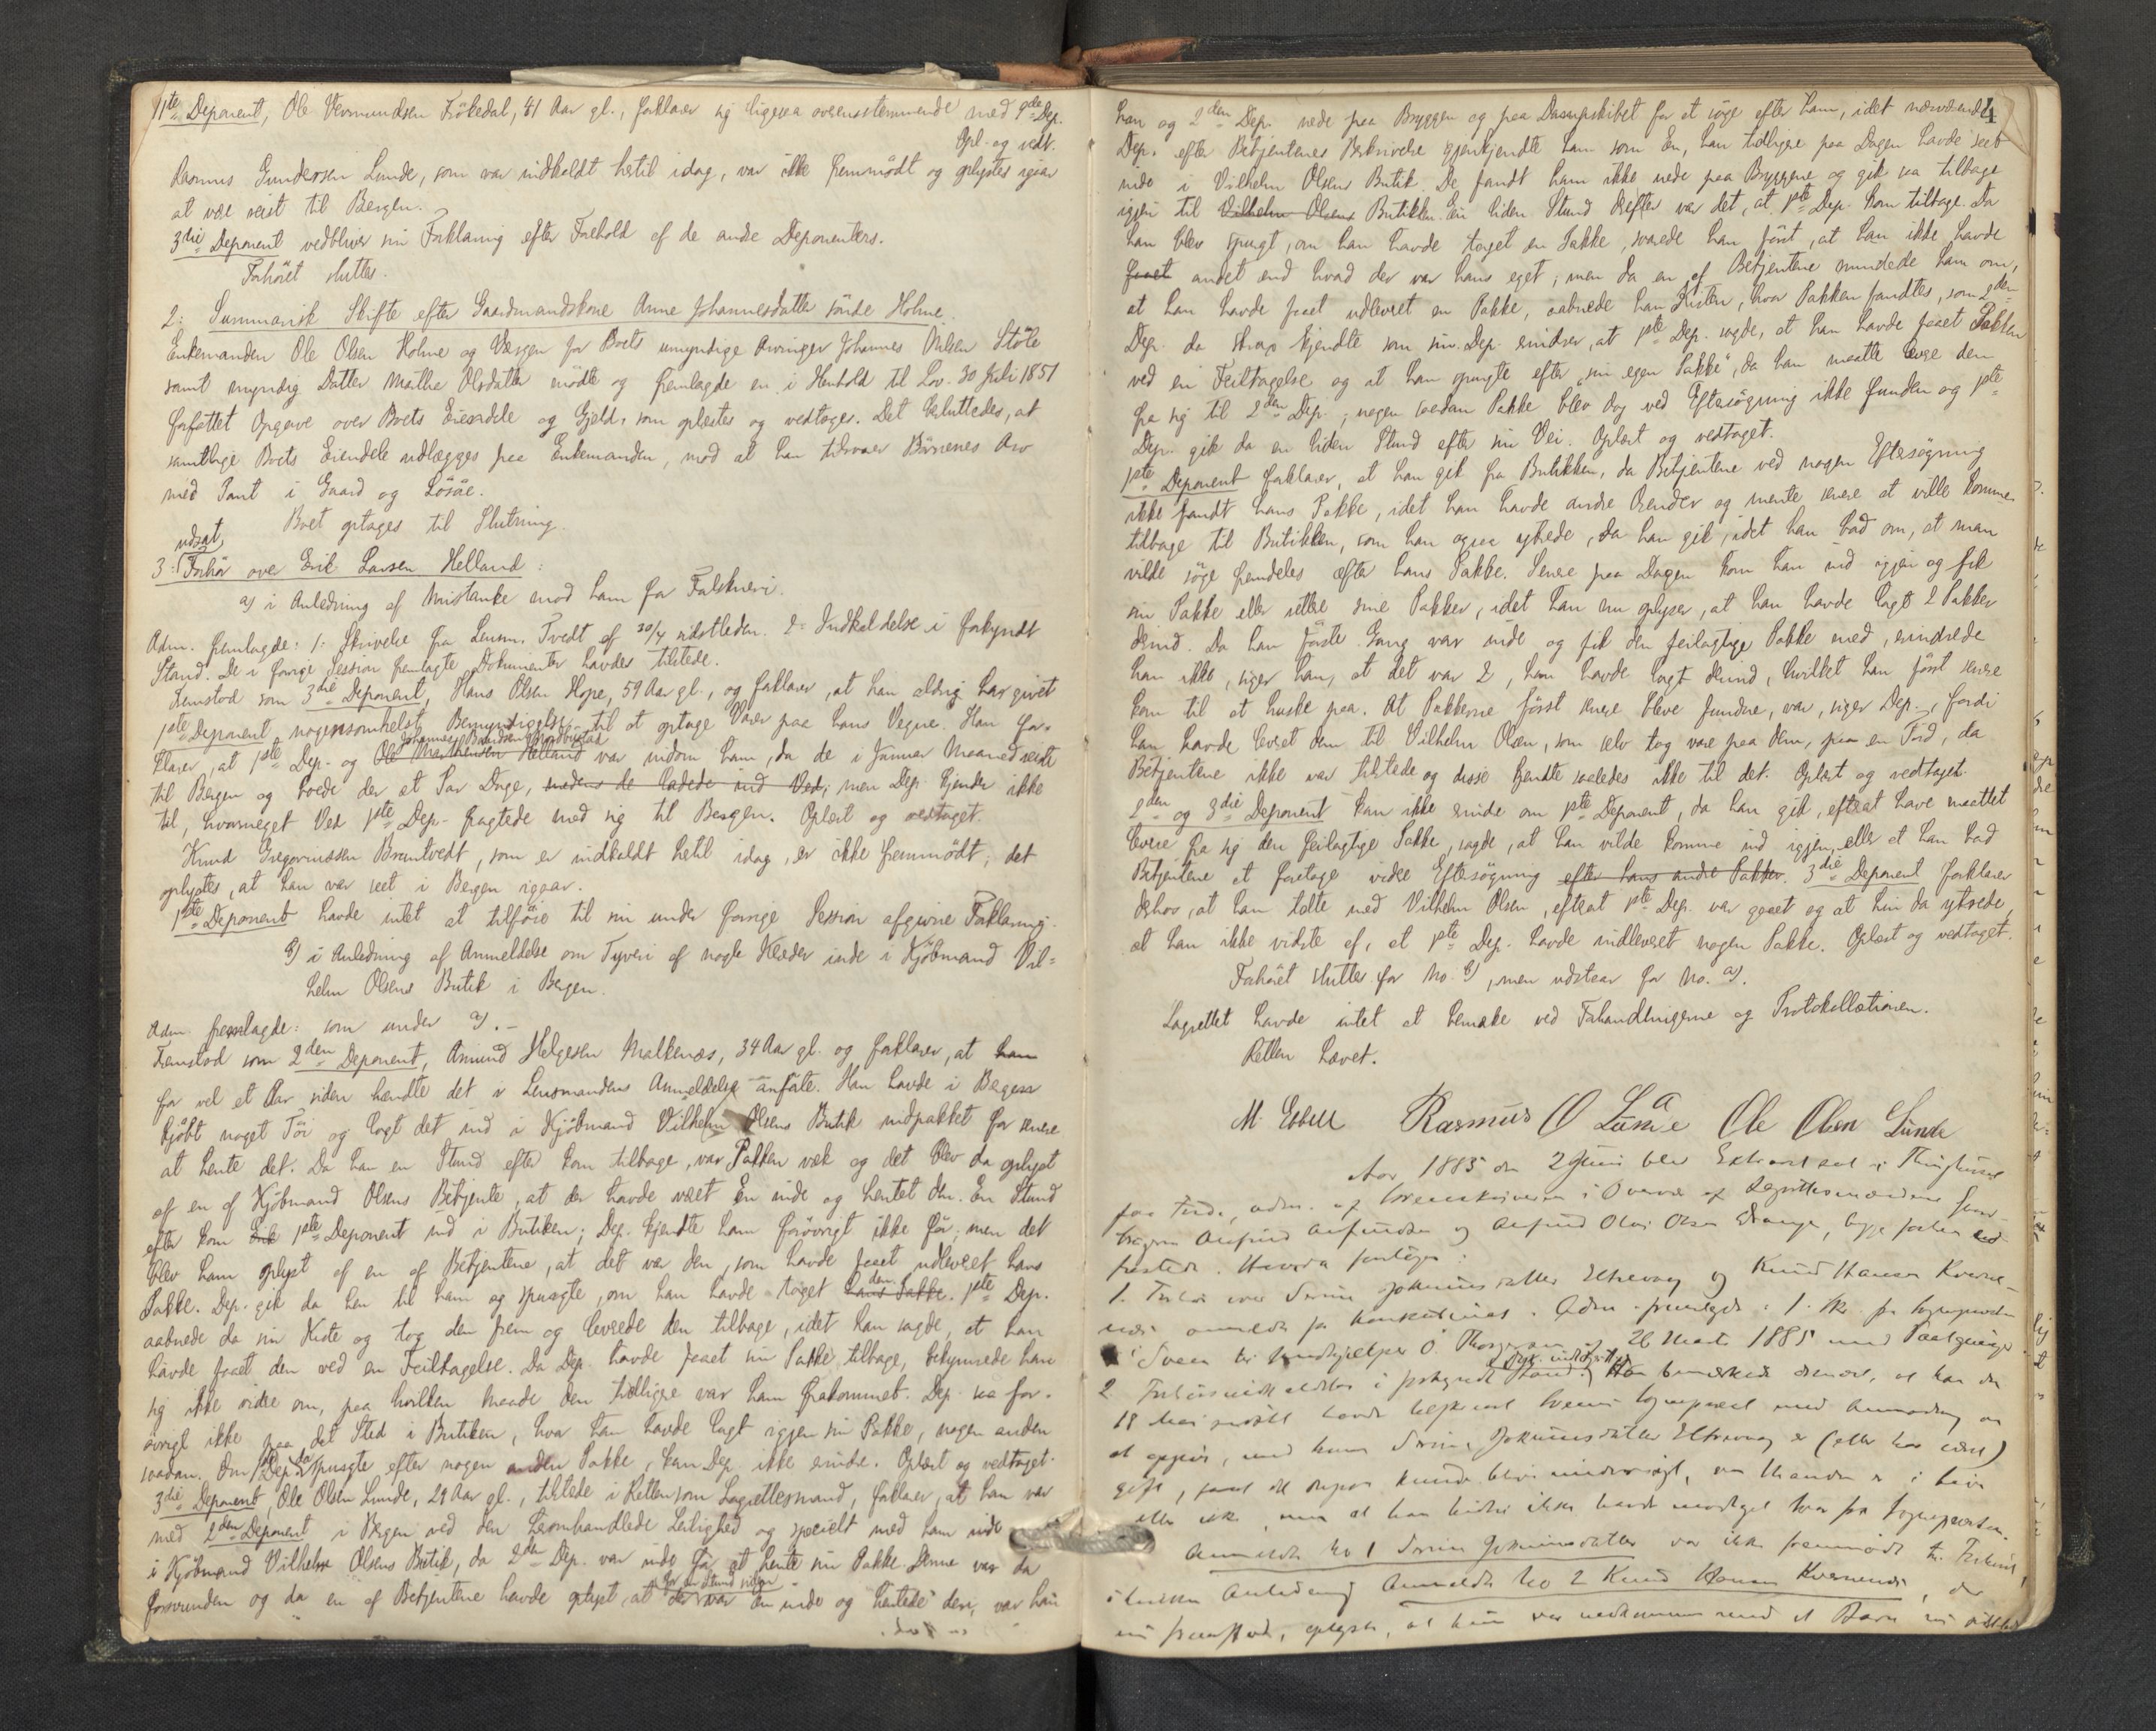 11te Deponent, Ole Vermundsen Frökedal, 41 Aar gl., forklarer sig ligesaa overensstemmende med 9de Dep.
Opl. og vedt.
Rasmus Gundersen Lunde, som var indkaldt hertil idag, var ikke fremmödt og oplystes igaar
at være reist til Bergen.
3die Deponent vedbliver sin Forklaring efter Forhold af de andre Deponenters.
Forhöret sluttes.
2: Summarisk Skifte efter Gaardmandskone Anne Johannesdatter Holme.
Enkemanden Ole Olsen Holme og Værgen for Boets umyndige Arvinger Johannes Nilsen Stöle
samt myndig Datter Mathe Olsdatter mödte og fremlagde en i Henhold til Lov. 30 Juli 1851
forfattet Opgave over Boets Eiendele og Gjeld, som oplæstes og vedtoges. Det besluttedes, at
samtlige Boets Eiendele udlægges paa Enkemanden, mod at han tilsvarer Börnenes Arv
med Pant i Gaard og Lösöre.
Boet optages til Slutning.
udsat
3: Forhör over Erik Larsen Helland:
a) i Anledning af Mistanke mod ham for Falskneri.
Adm. fremlagde: 1: Skrivelse fra Lensm. Tvedt af 30/4 sidstleden. 2: Indkaldelse i forkyndt
Stand. De i forrige Session fremlagte Dokumenter havdes tilstede.
Fremstod som 3die Deponent, Hans Olsen Hope, 59 Aar gl., og forklarer, at han aldrig har givet
1ste Deponent nogensomhelst Bemyndigelse til at optage Varer paa hans Vegne. Han for-
klarer, at 1ste Dep. og Ole Mathiasen Helland var indom ham, da de i Januar Maaned reiste
til Bergen og boede der et Par Dage, medens de ladede ind Ved, men Dep. kjender ikke
til, hvormeget Ved 1ste Dep. fragtede med sig til Bergen. Oplæst og vedtaget.
Knud Gregoriussen Brantvedt, som er indkaldt hertil idag, er ikke fremmödt; det
oplystes, at han var seet i Bergen igaar.
1ste Deponent havde intet at tilföie til sin under forrige Session afgivne Forklaring.
b) i Anledning af Anmeldelse om Tyveri af nogle Klæder inde i Kjöbmand Vil-
helm Olsens Butik i Bergen.
Adm. fremlagde: som under a).-
Fremstod som 2den Deponent, Amund Helgesen Malkenæs, 34 Aar gl. og forklarer, at han
for vel et Aar siden hændte det i Lensmandens Anmeldelse anförte. Han havde i Bergen
kjöbt noget Töi og lagt det ind i Kjöbmand Vilhelm Olsens Butik indpakket for senere
at hente det. Da han en Stund efter kom tilbage, var Pakken væk og det blev da oplyst
af en af Kjöbmand Olsens Betjente, at der havde været En inde og hentet den. En Stund
efter kom Erik 1ste Deponent ind i Butiken; Dep. kjendte ham forövrigt ikke för; men det
blev ham oplyst af en af Betjentene, at det var den, som havde faaet udleveret hans
Pakke. Dep. gik da hen til ham og spurgte, om han havde taget hans Pakke. den 1ste Dep.
aabnede da sin Kiste og tog den frem og leverede den tilbage, idet han sagde, at han
havde faaet den ved en Feiltagelse. Da Dep. havde faaet sin Pakke tilbage, bekymrede han
sig ikke videre om, paa hvilken Maade den tidligere var ham frakommet. Dep. saa for-
övrigt ikke paa det Sted i Butiken, hvor han havde lagt igjen sin Pakke, nogen anden
saadan. Om 1ste Dep. da spurgte efter nogen anden Pakke, kan Dep. ikke erindre. Oplæst og vedtaget.
3die Deponent, Ole Olsen Lunde, 29 Aar gl., tilstede i Retten som Lagrettesmand, forklarer, at han var
med 2den Deponent i Bergen ved den heromhandlede Leilighed og specielt med ham inde
i Kjöbmand Vilhelm Olsens Butik, da 2den Dep. var inde for at hente sin Pakke. Denne var da
for en Stund siden
forsvunden og da en af Betjentene havde oplyst, at der var En inde og hentede den, var han
han og 2den Dep. nede paa Bryggen og paa Dampskibet for at söge efter ham, idet nærværende 4
Dep. efter Betjentenes Beskrivelse gjenkjendte ham som En, han tidligere paa Dagen havde seet
inde i Vilhelm Olsens Butik. De fandt ham ikke nede paa Bryggene og gik saa tilbage
igjen til Vilhelm Olsens Butikken. En liden Stund derefter var det, at 1ste Dep. kom tilbage. Da
han blev spurgt, om han havde taget en Pakke, svarede han först, at han ikke havde
faaet andet end hvad der var hans eget; men da en af Betjentene mindede ham om,
at han havde faaet udleveret en Pakke, aabnede han Kisten, hvor Pakken fandtes, som 2den
Dep. da strax kjendte som sin. Dep. erindrer, at 1ste Dep. sagde, at han havde faaet Pakken
ved en Feiltagelse og at han spurgte efter "sin egen Pakke", da han maatte levere den
fra sig til 2den Dep.; nogen saadan Pakke blev dog ved Eftersögning ikke funden og 1ste
Dep. gik da en liden Stund efter sin Vei. Oplæst og vedtaget.
1ste Deponent forklarer, at han gik fra Butikken, da Betjentene ved nogen Eftersögning
ikke fandt hans Pakke, idet han havde andre Ærender og mente senere at ville komme
tilbage til Butikken, som han ogsaa ytrede, da han gik, idet han bad om, at man
vilde söge fremdeles efter hans Pakke. Senere paa Dagen kom han ind igjen og fik
sin Pakke eller rettere sine Pakker, idet han nu oplyser, at han havde lagt 2 Pakker
derind. Da han förste Gang var inde og fik den feilagtige Pakke med, erindrede
han ikke, siger han, at det var 2, han havde lagt derind, hvilket han först senere
kom til at huske paa. At Pakkerne först senere bleve fundne, var, siger Dep., fordi
han havde leveret dem til Vilhelm Olsen, som selv tog vare paa dem, paa en Tid, da
Betjentene ikke var tilstede og disse kjendte saaledes ikke til det. Oplæst og vedtaget.
2den og 3die Deponent kan ikke erindre om 1ste Deponent, da han gik, efterat have maattet
levere fra sig den feilagtige Pakke, sagde, at han vilde komme ind igjen eller at han bad
Betjentene at foretage videre Eftersögning efter hans andre Pakker. 3die Deponent forklarer
derhos, at han talte med Vilhelm Olsen, efterat 1ste Dep. var gaaet og at hin da ytrede,
at han ikke vidste af, at 1ste Dep. havde indleveret nogen Pakke. Oplæst og vedtaget.
Forhöret sluttes for No. b), men udstaar for No. a).
Lagrettet havde intet at bemærke ved Forhandlingerne og Protokollationen.
Retten hævet.
M. Ebbell Rasmus O Lunde Ole Olsen Lunde
Aar 1885 den 2 Juni blev Extraret sat i Thinghuset
paa adm. af Sorenskriveren i Overvær af Lagrettesmændene
og Olsen begge
. Hvorda foretoges:
1. Forhör over Serine Joakimsdatter og Knud Hansen
anmeldt for . Adm. fremlagde: 1. Skr. fra
Sveen til 26 Marts 1885 med
2 i forkyndt Stand. bemærkede at han den
18 Mai havde med Anmodning om
at , med hvem Serine Joakimsdatter er (eller har været)
gift, samt om Manden er i live
eller ikke, men at han ikke havde modtaget Svar fra
Anmeldte No 1 Serine Joakimsdatter var ikke fremmödt
i hvilken Anledning Anmeldte No 2 Knud Hansen , der
nu fremstod, oplyste, at hun var nedkommen med et Barn